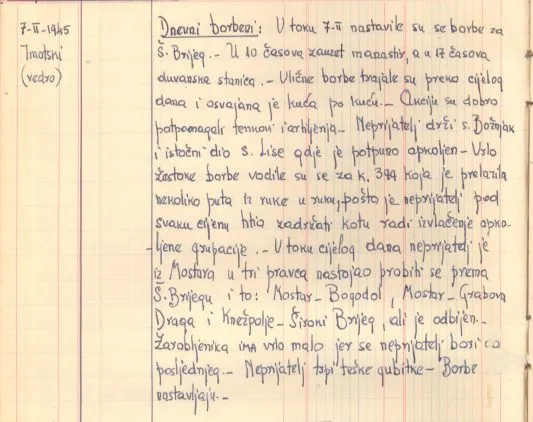 7-II-1945
Imotski
(vedro)
Dnevni borbeni: U toku 7-II nastavile su se borbe za
Š. Brijeg.- U 10 časova zauzet manastir, a u 17 časova
duvanska stanica.- Ulične borbe trajale su preko cijelog
dana i osvajana je kuća po kuću.- Akciju su dobro
potpomagali tenkovi i artiljerija- Neprijatelj drži s. Božnjak
i istočni dio s. Lise gdje je potpuno opkoljen- Vrlo
žestoke borbe vodile su se za k. 394 koja je prelazila
nekoliko puta iz ruke u ruku, pošto je neprijatelj pod
svaku cijenu htio zadržati kotu radi izvlačenje opko-
ljene grupacije.- U toku cijelog dana neprijatelj je
iz Mostara u tri pravca nastojao probiti se prema
Š. Brijegu i to: Mostar- Bogodol, Mostar- Grabova
Draga i Knežpolje- Široki Brijeg, ali je odbijen.-
Zarobljenika ima vrlo malo jer se neprijatelj bori do
posljednjeg.- Neprijatelj trpi teške gubitke- Borbe
nastavljaju.-